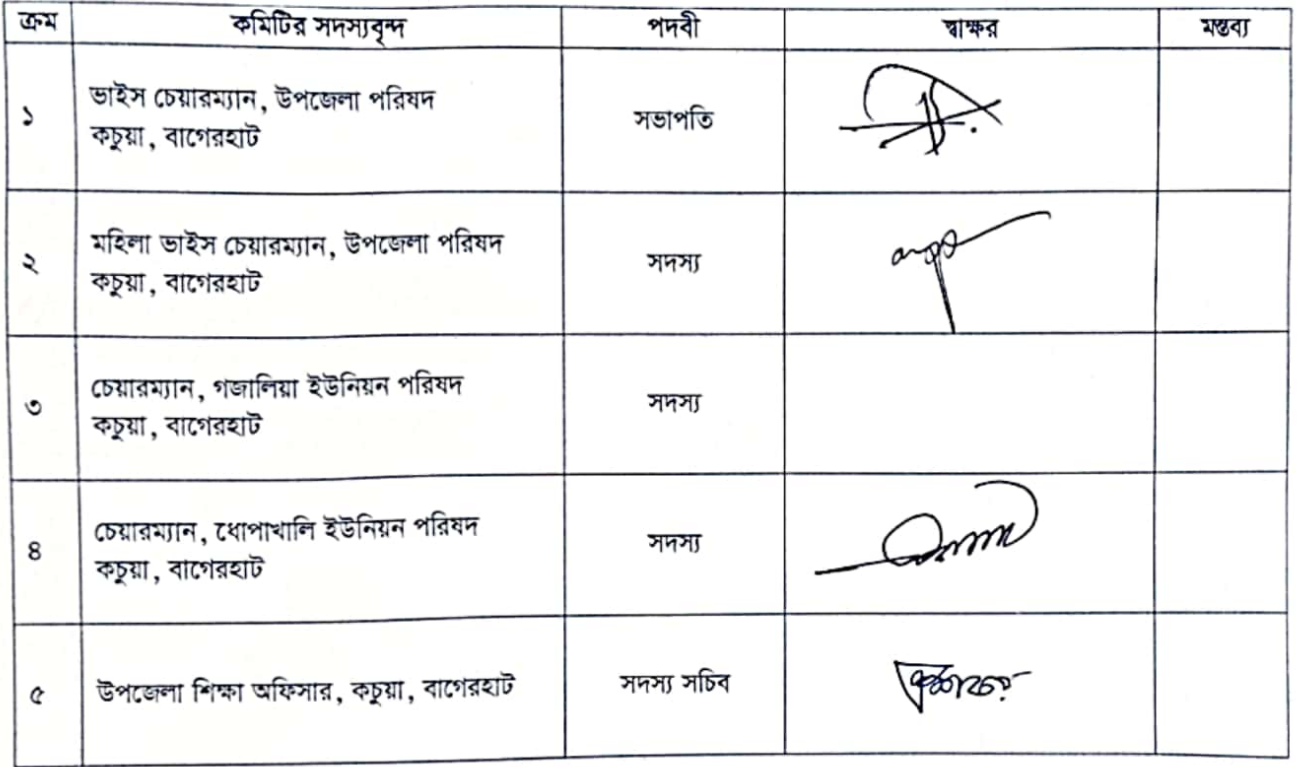 ক্রম কমিটির সদস্যবৃন্দ পদবী স্বাক্ষর মন্তব্য
১ ভাইস চেয়ারম্যান, উপজেলা পরিষদ
কচুয়া, বাগেরহাট সভাপতি
২ মহিলা ভাইস চেয়ারম্যান, উপজেলা পরিষদ
কচুয়া, বাগেরহাট সদস্য
৩ চেয়ারম্যান, গজালিয়া ইউনিয়ন পরিষদ
কচুয়া, বাগেরহাট সদস্য
৪ চেয়ারম্যান, ধোপাখালি ইউনিয়ন পরিষদ
কচুয়া, বাগেরহাট সদস্য
৫ উপজেলা শিক্ষা অফিসার, কচুয়া, বাগেরহাট সদস্য সচিব